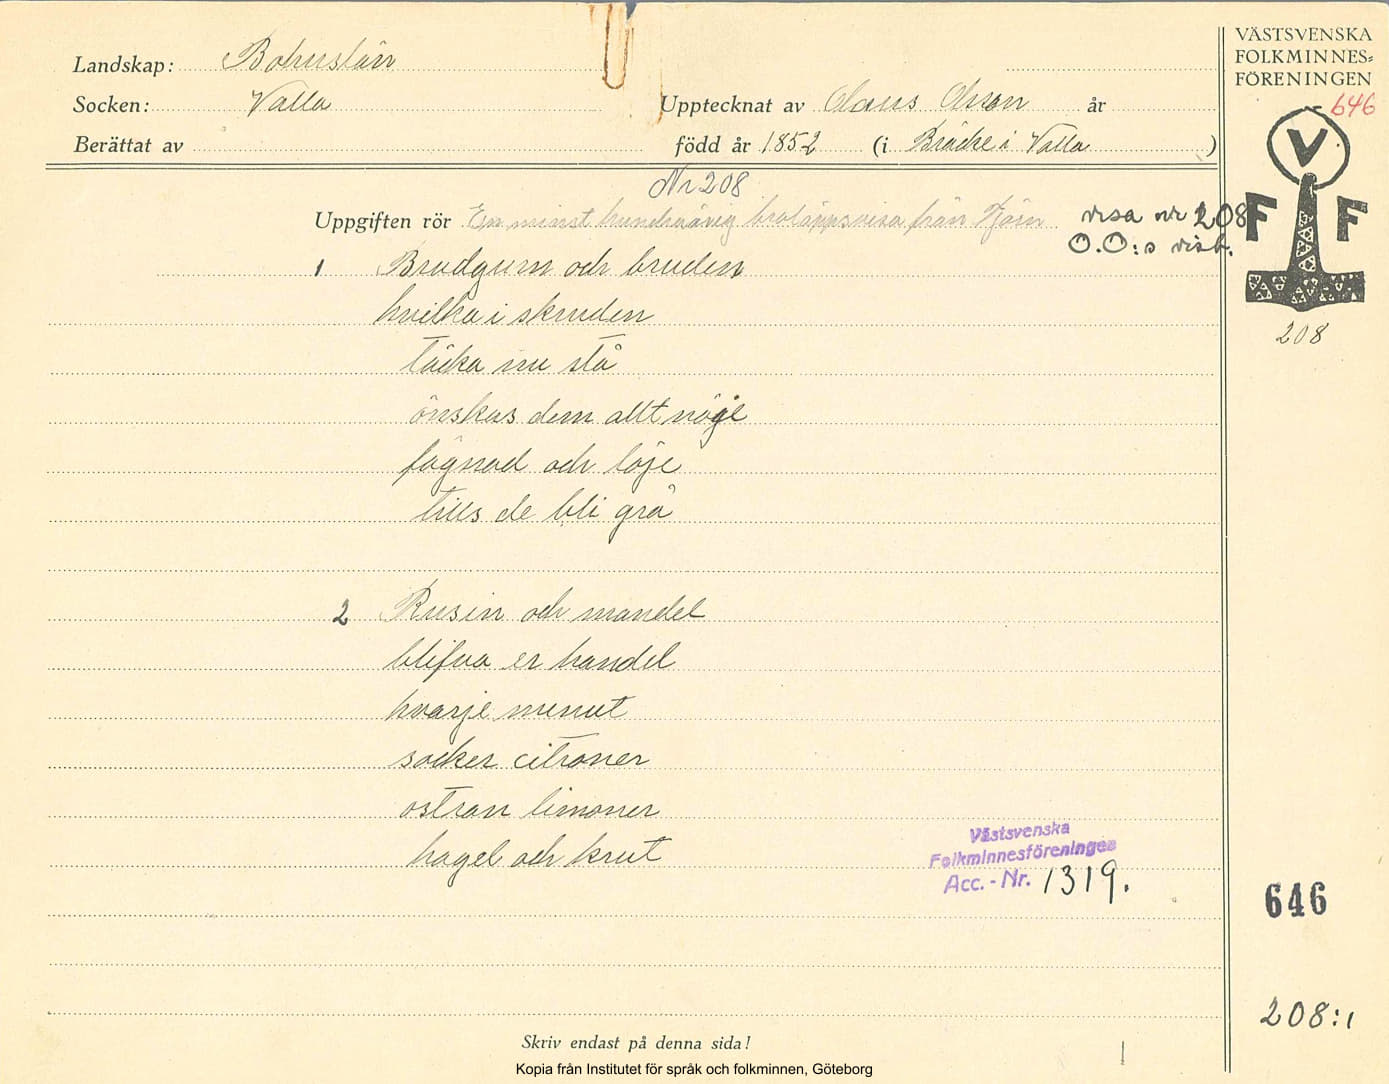 Landskap: Bohuslän
Socken: Valla
Upptecknat av Olaus Olsson år
Berättat av
född år 1852 (i Bräcke i Valla )
VÄSTSVENSKA
FOLKMINNES-
FÖRENINGEN
646
V
F F
208
Nr 208
Uppgiften rör En minst hundraårig brölöppsvisa från Tjörn
visa nr 208
O.O:s visb.
1 Brudgum och bruden
hvilka i skruden
täcka nu stå
önskas dem allt nöje
fägnad och löje
tills de bli grå
2 Rusin och mandel
blifva er handel
hvarje minut
socker citroner
ostron limoner
hagel och krut
Västsvenska
Folkminnesföreningen
Acc. - Nr. 1319.
646
208:1
Skriv endast på denna sida!
Kopia från Institutet för språk och folkminnen, Göteborg